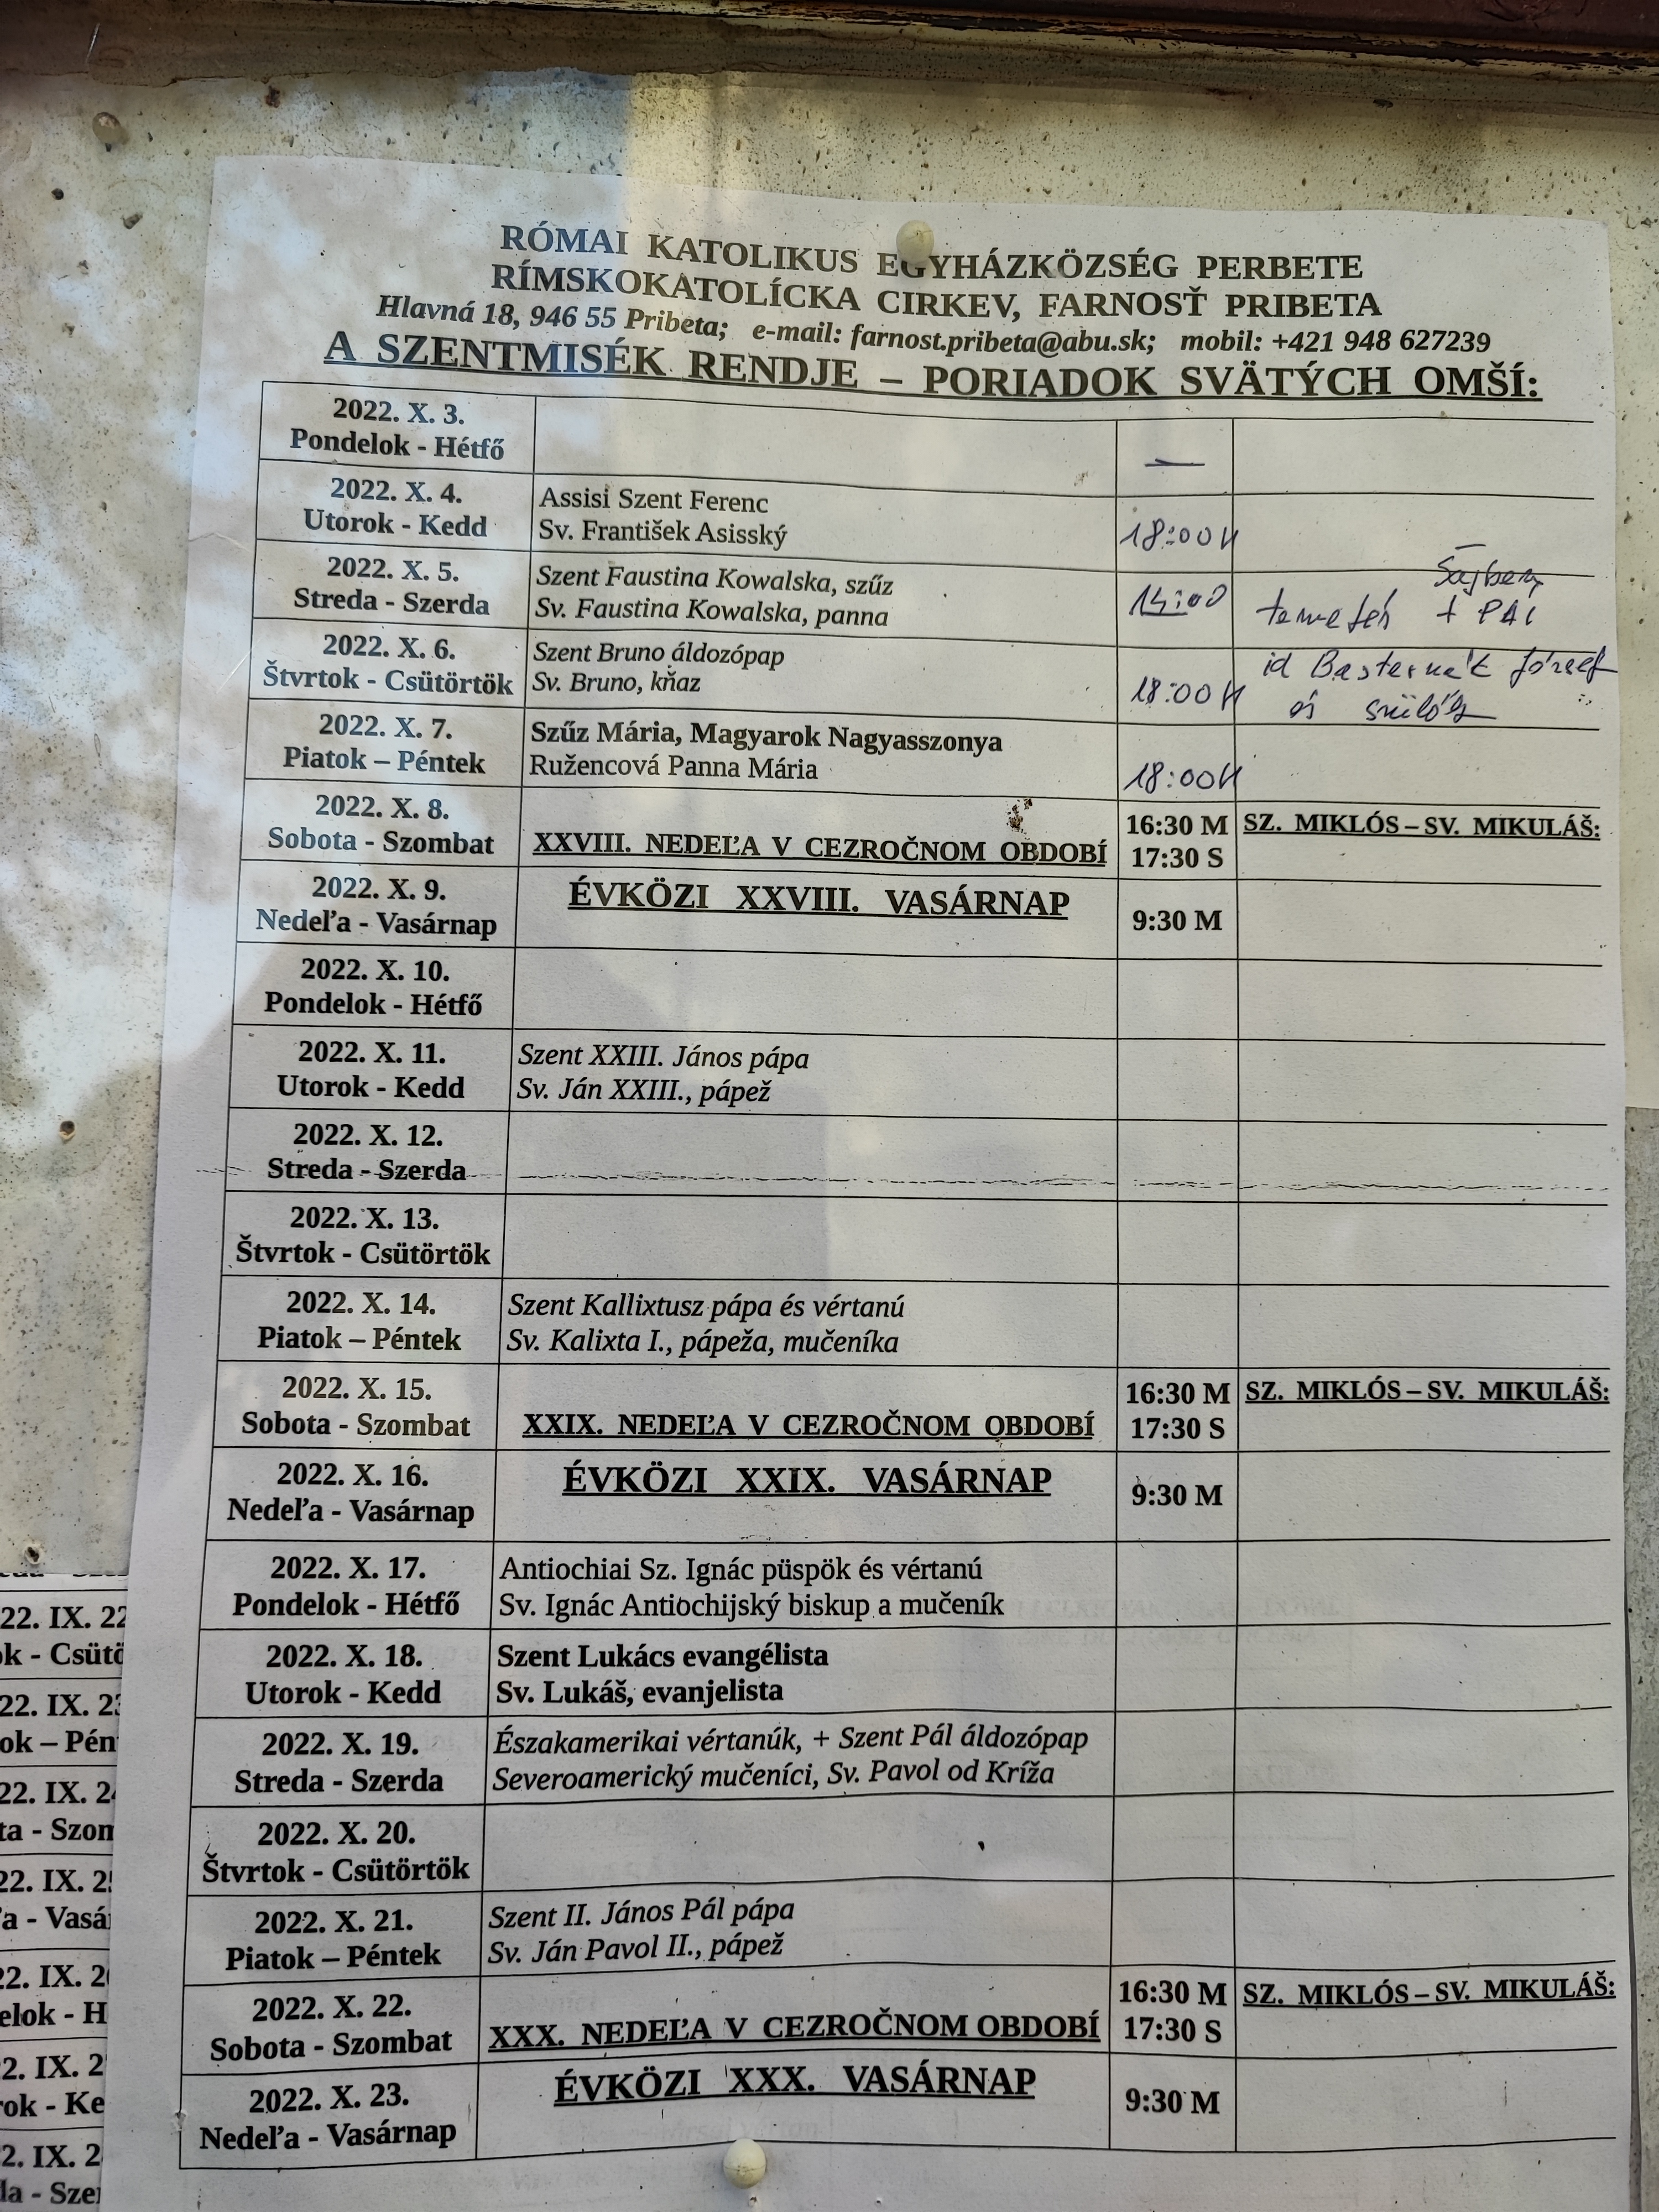 RÓMAI KATOLIKUS EGYHÁZKÖZSÉG PERBETE
RÍMSKOKATOLÍCKA CIRKEV, FARNOSŤ PRIBETA
Hlavná 18, 946 55 Pribeta; e-mail: farnost.pribeta@abu.sk; mobil: +421 948 627239
A SZENTMISÉK RENDJE – PORIADOK SVÄTÝCH OMŠÍ:
2022. X. 3.
Pondelok - Hétfő
—
2022. X. 4.
Utorok - Kedd
Assisi Szent Ferenc
Sv. František Asisský
18:00 H
2022. X. 5.
Streda - Szerda
Szent Faustina Kowalska, szűz
Sv. Faustina Kowalska, panna
temetés + PÁL
2022. X. 6.
Štvrtok - Csütörtök
Szent Bruno áldozópap
Sv. Bruno, kňaz
18:00 H
id Basternák József
és szülők
2022. X. 7.
Piatok – Péntek
Szűz Mária, Magyarok Nagyasszonya
Ružencová Panna Mária
18:00 H
2022. X. 8.
Sobota - Szombat
XXVIII. NEDEĽA V CEZROČNOM OBDOBÍ
16:30 M
17:30 S
SZ. MIKLÓS – SV. MIKULÁŠ:
2022. X. 9.
Nedeľa - Vasárnap
ÉVKÖZI XXVIII. VASÁRNAP
9:30 M
2022. X. 10.
Pondelok - Hétfő
2022. X. 11.
Utorok - Kedd
Szent XXIII. János pápa
Sv. Ján XXIII., pápež
2022. X. 12.
Streda - Szerda
2022. X. 13.
Štvrtok - Csütörtök
2022. X. 14.
Piatok – Péntek
Szent Kallixtusz pápa és vértanú
Sv. Kalixta I., pápeža, mučeníka
2022. X. 15.
Sobota - Szombat
XXIX. NEDEĽA V CEZROČNOM OBDOBÍ
16:30 M
17:30 S
SZ. MIKLÓS – SV. MIKULÁŠ:
2022. X. 16.
Nedeľa - Vasárnap
ÉVKÖZI XXIX. VASÁRNAP
9:30 M
2022. X. 17.
Pondelok - Hétfő
Antiochiai Sz. Ignác püspök és vértanú
Sv. Ignác Antiochijský biskup a mučeník
2022. X. 18.
Utorok - Kedd
Szent Lukács evangélista
Sv. Lukáš, evanjelista
2022. X. 19.
Streda - Szerda
Északamerikai vértanúk, + Szent Pál áldozópap
Severoamerický mučeníci, Sv. Pavol od Kríža
2022. X. 20.
Štvrtok - Csütörtök
2022. X. 21.
Piatok – Péntek
Szent II. János Pál pápa
Sv. Ján Pavol II., pápež
2022. X. 22.
Sobota - Szombat
XXX. NEDEĽA V CEZROČNOM OBDOBÍ
16:30 M
17:30 S
SZ. MIKLÓS – SV. MIKULÁŠ:
2022. X. 23.
Nedeľa - Vasárnap
ÉVKÖZI XXX. VASÁRNAP
9:30 M
22. IX. 22
ok - Csütö
22. IX. 23
ok – Pén
22. IX. 24
ta - Szom
22. IX. 25
ľa - Vasá
22. IX. 2
elok - H
2. IX. 2
rok - Ke
2. IX. 2
da - Szer